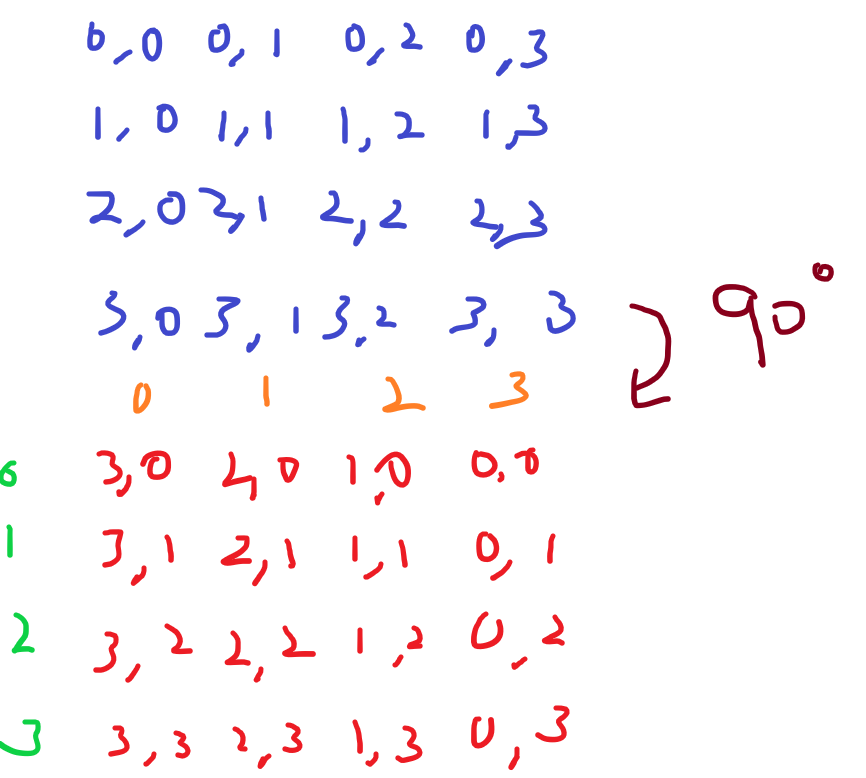 0,0 0,1 0,2 0,3
1,0 1,1 1,2 1,3
2,0 2,1 2,2 2,3
3,0 3,1 3,2 3,3
90°
0 1 2 3
0 3,0 2,0 1,0 0,0
1 3,1 2,1 1,1 0,1
2 3,2 2,2 1,2 0,2
3 3,3 2,3 1,3 0,3